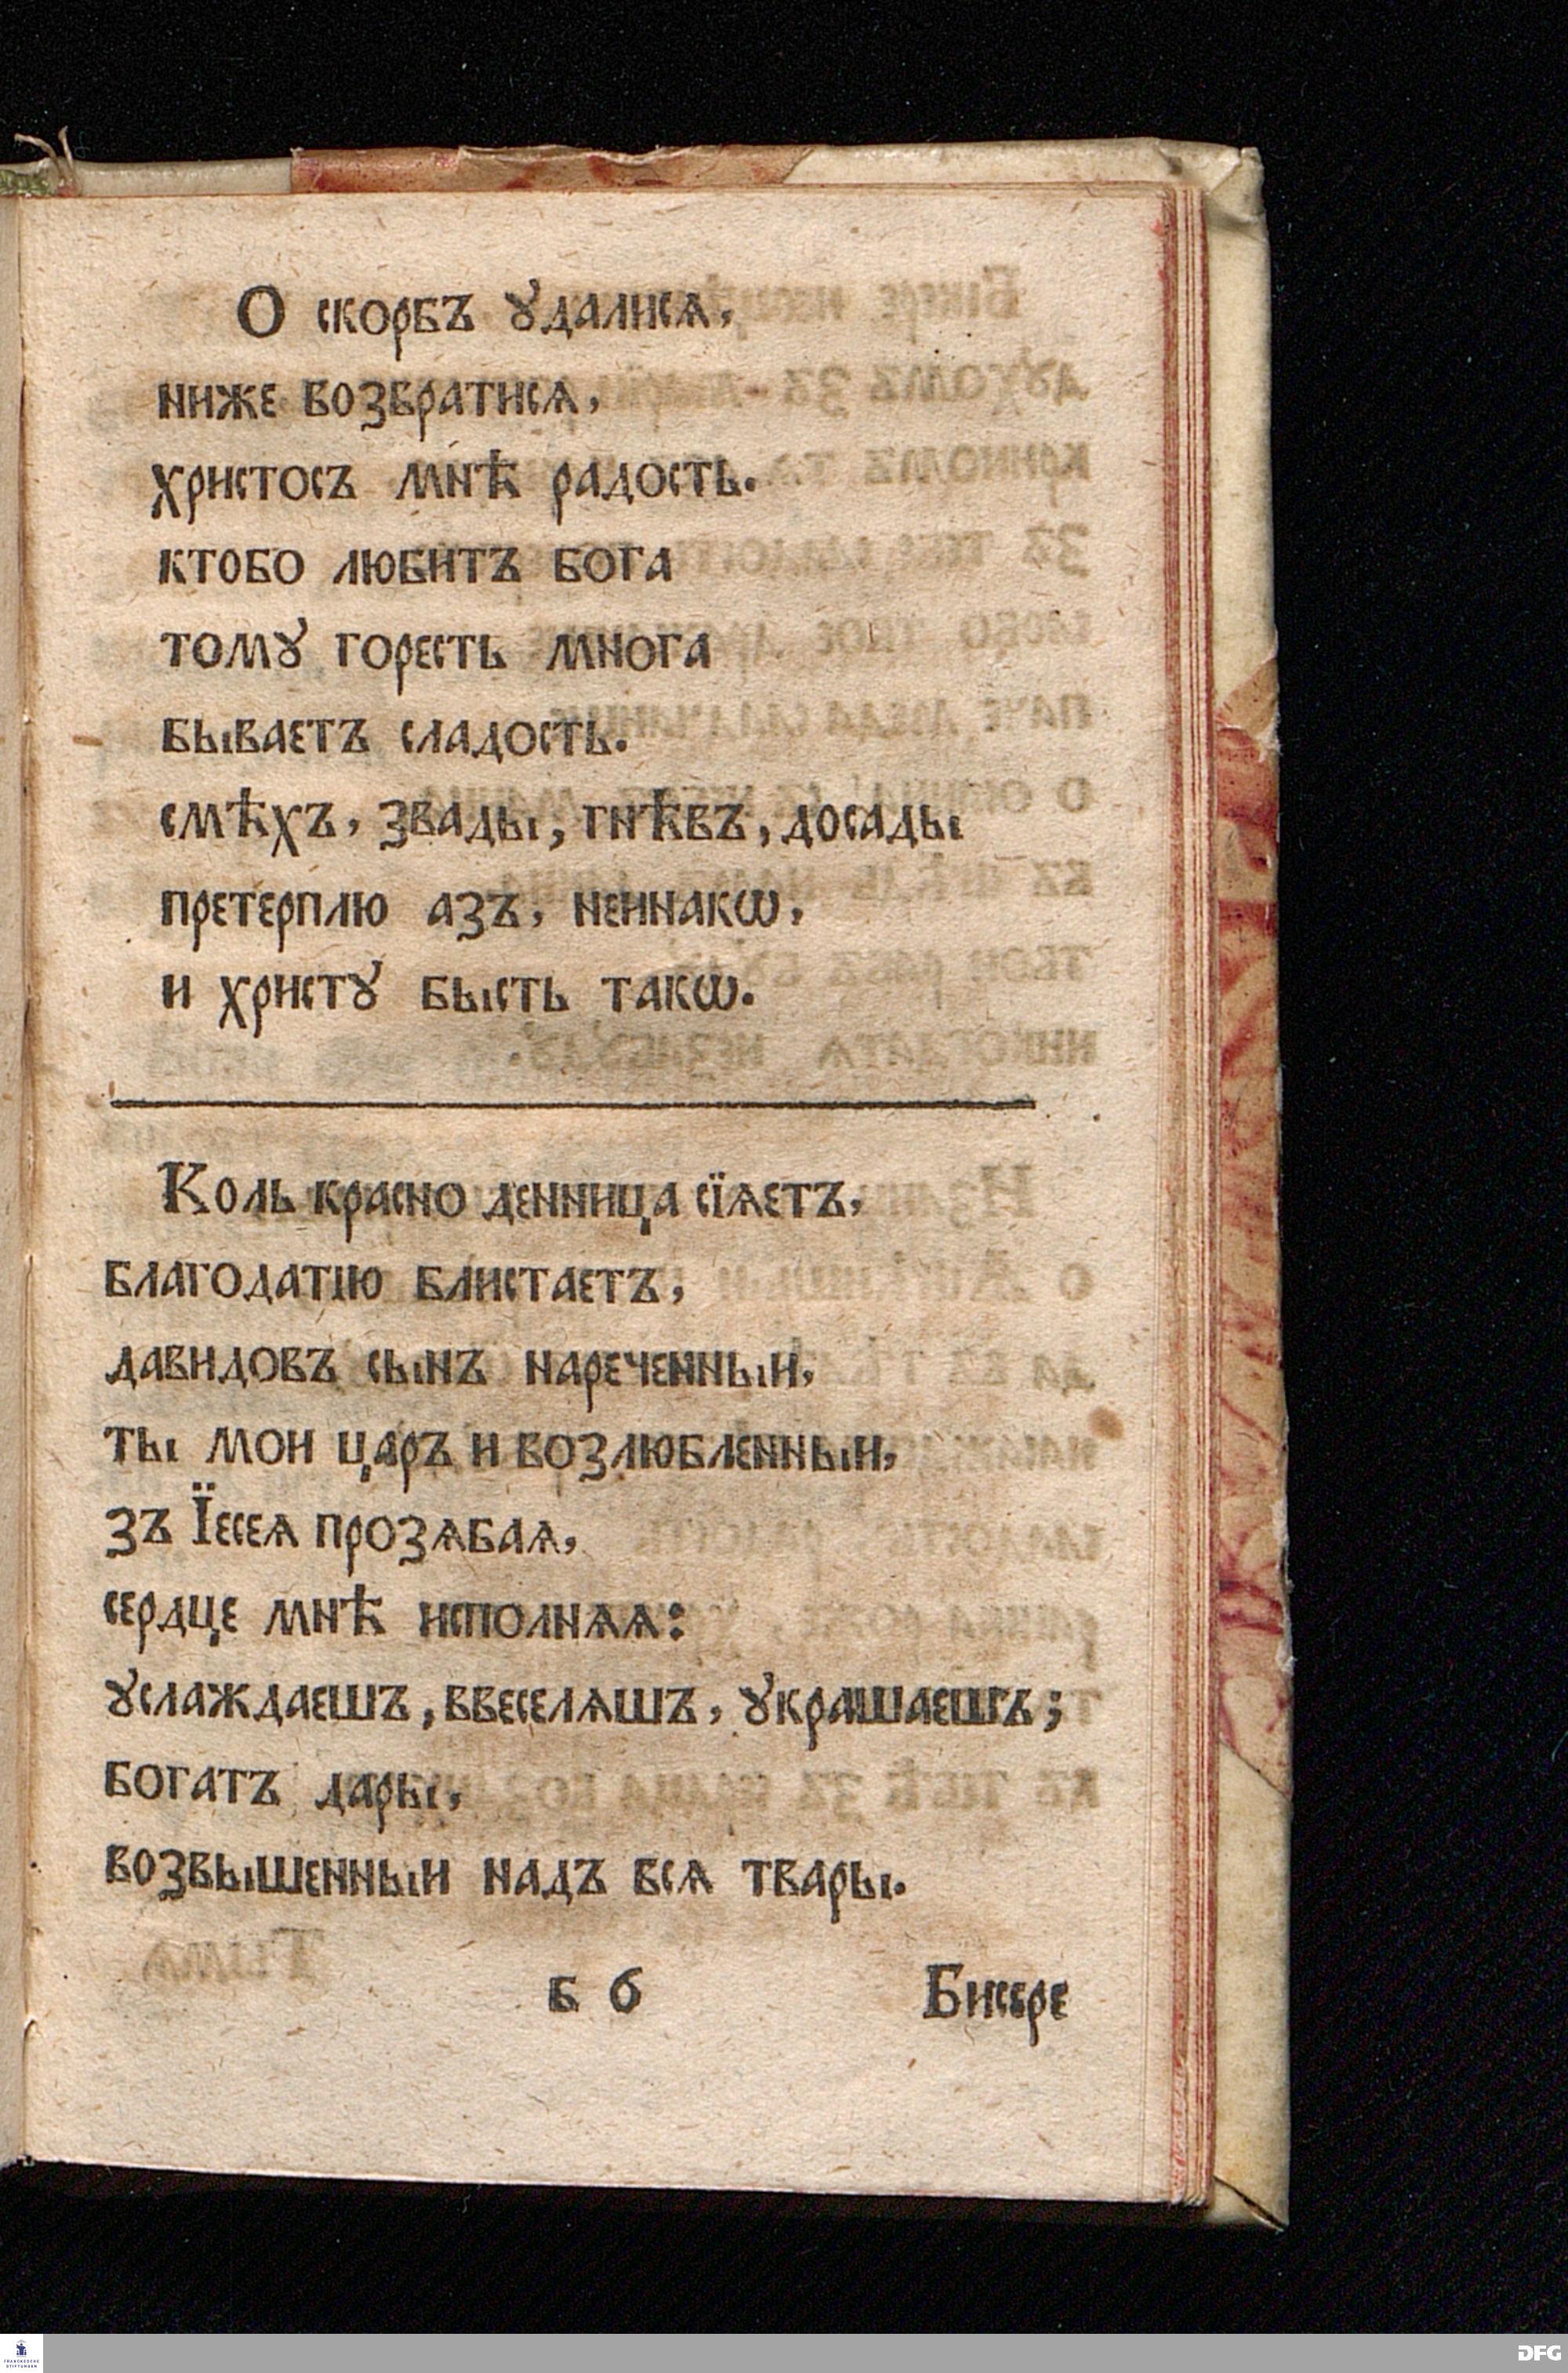 О скорбъ ꙋдалисѧ,
ниже возвратисѧ,
христосъ мнѣ радость.
ктобо любитъ бога
томꙋ горесть многа
бываетъ сладость.
смѣхъ, звады, гнѣвъ, досады
претерплю азъ, неинакѡ,
и христꙋ бысть такѡ.
Коль красно денница сїѧетъ,
благодатію блистаетъ,
давидовъ сынъ нареченныи,
ты мои царъ и возлюбленныи,
зъ Їесеѧ прозѧбаѧ,
сердце мнѣ исполнѧѧ:
ꙋслаждаешъ, ввеселѧшъ, ꙋкрашаешъ;
богатъ дары,
возвышенныи надъ всѧ твары.
Б 6 Бисере
FRANCKESCHE
STIFTUNGEN
DFG